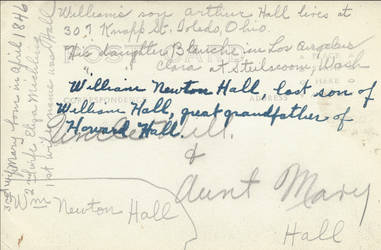 William's son Arthur Hall lives at
30? Knapp St. Toledo, Ohio
His daughter Blanche in Los Angeles
" Clara at Steilacoom, Wash
William Newton Hall, last son of
William Hall, great grandfather of
Howard Hall.
Uncle Will.
&
Aunt Mary
Hall
Wm Newton Hall
3rd wife Mary born in April 1846
2nd wife Eliza
1st wife